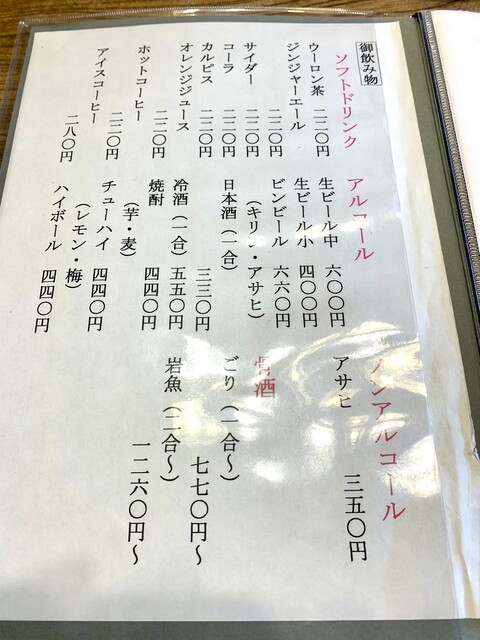 御飲み物
ソフトドリンク
ウーロン茶 二二〇円
ジンジャーエール
二二〇円
サイダー 二二〇円
コーラ 二二〇円
カルピス 二二〇円
オレンジジュース
二二〇円
ホットコーヒー
二二〇円
アイスコーヒー
二八〇円
アルコール
生ビール中 六〇〇円
生ビール小 四〇〇円
ビンビール 六六〇円
(キリン・アサヒ)
日本酒(一合)
三三〇円
冷酒(一合) 五五〇円
焼酎 四四〇円
(芋・麦)
チューハイ 四四〇円
(レモン・梅)
ハイボール 四四〇円
ノンアルコール
アサヒ 三五〇円
骨酒
ごり(一合〜)
七七〇円〜
岩魚(二合〜)
一二六〇円〜